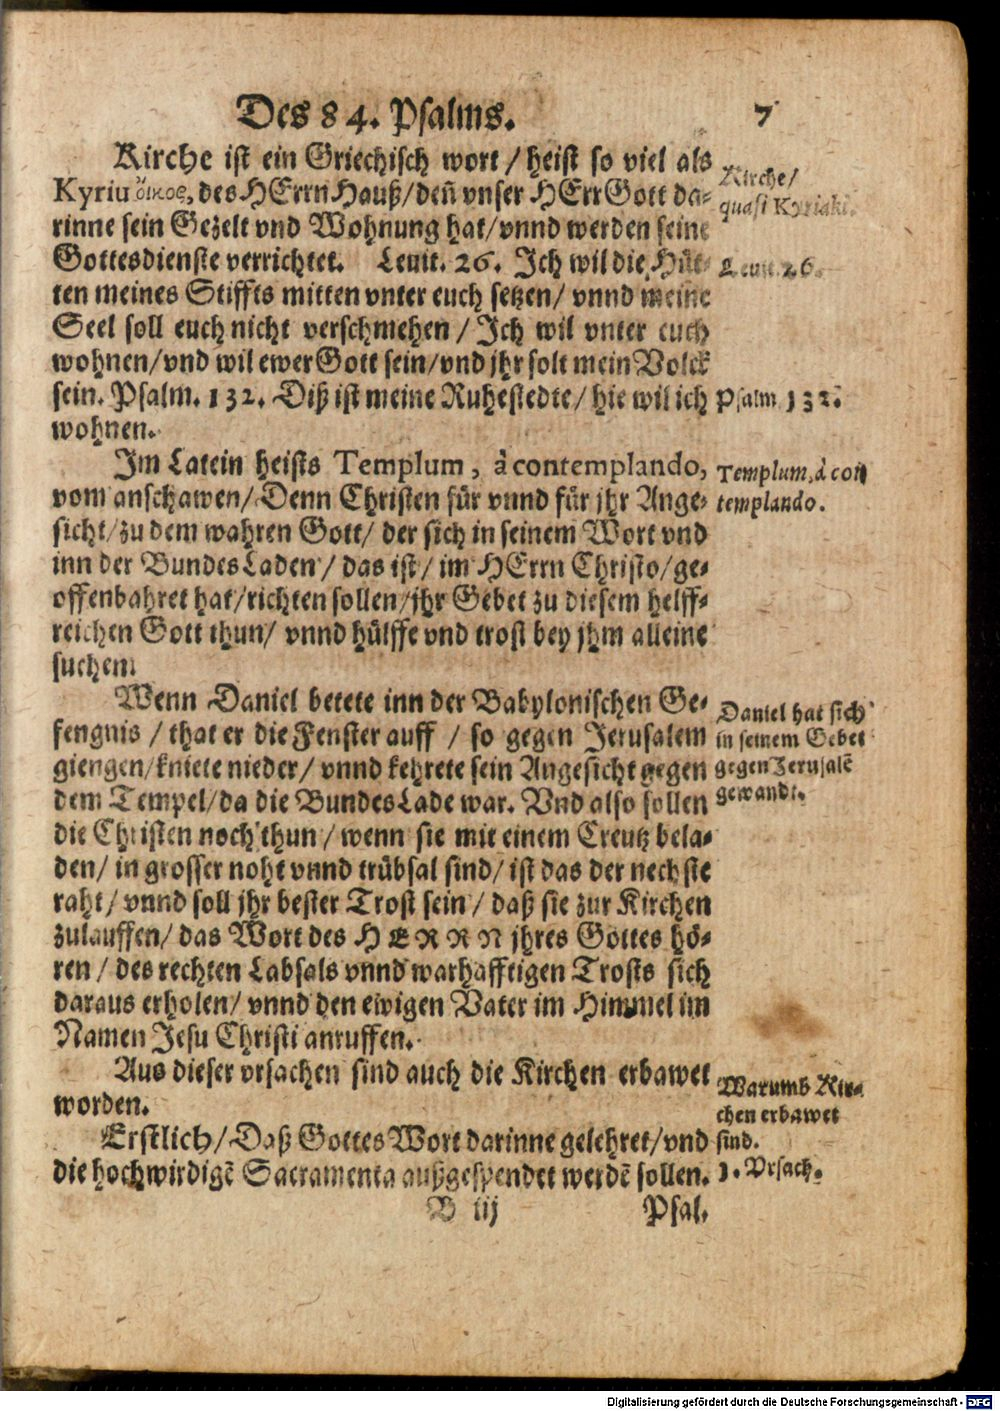 Des 84. Psalms. 7
Kirche ist ein Griechisch wort / heist so viel als
Kyriu οἶκος, des HErrn Hauß/ deñ vnser HErr Gott da-
rinne sein Gezelt vnd Wohnung hat/ vnnd werden seine
Gottesdienste verrichtet. Levit. 26. Ich wil die Hüt-
ten meines Stiffts mitten vnter euch setzen/ vnnd meine
Seel soll euch nicht verschmehen / Ich wil vnter euch
wohnen/ vnd wil ewer Gott sein/ vnd jhr solt mein Volck
sein. Psalm. 132. Diß ist meine Ruhestedte/ hie wil ich
wohnen.
Kirche/
quasi Kyriaki.
Levit. 26.
Psalm 132.
Im Latein heists Templum, à contemplando,
vom anschawen/ Denn Christen für vnnd für jhr Ange-
sicht/ zu dem wahren Gott/ der sich in seinem Wort vnd
inn der BundesLaden / das ist / im HErrn Christo/ ge-
offenbahret hat/ richten sollen/ jhr Gebet zu diesem helff-
reichen Gott thun/ vnnd hülffe vnd trost bey jhm alleine
suchen.
Templum, à con
templando.
Wenn Daniel betete inn der Babylonischen Ge-
fengnis / that er die Fenster auff / so gegen Jerusalem
giengen/ kniete nieder/ vnnd kehrete sein Angesicht gegen
dem Tempel/ da die BundesLade war. Vnd also sollen
die Christen noch thun / wenn sie mit einem Creutz bela-
den/ in grosser noht vnnd trübsal sind/ ist das der nechste
raht/ vnnd soll jhr bester Trost sein / daß sie zur Kirchen
zulauffen/ das Wort des HERRN jhres Gottes hö-
ren / des rechten Labsals vnnd warhafftigen Trosts sich
daraus erholen/ vnnd den ewigen Vater im Himmel im
Namen Jesu Christi anruffen.
Daniel hat sich
in seinem Gebet
gegen Jerusalē
gewandt.
Aus dieser vrsachen sind auch die Kirchen erbawet
worden.
Erstlich/ Daß Gottes Wort darinne gelehret/ vnd
die hochwirdigē Sacramenta außgespendet werdē sollen.
Warumb Kir-
chen erbawet
sind.
1. Vrsach.
B iij Psal.
Digitalisierung gefördert durch die Deutsche Forschungsgemeinschaft - DFG